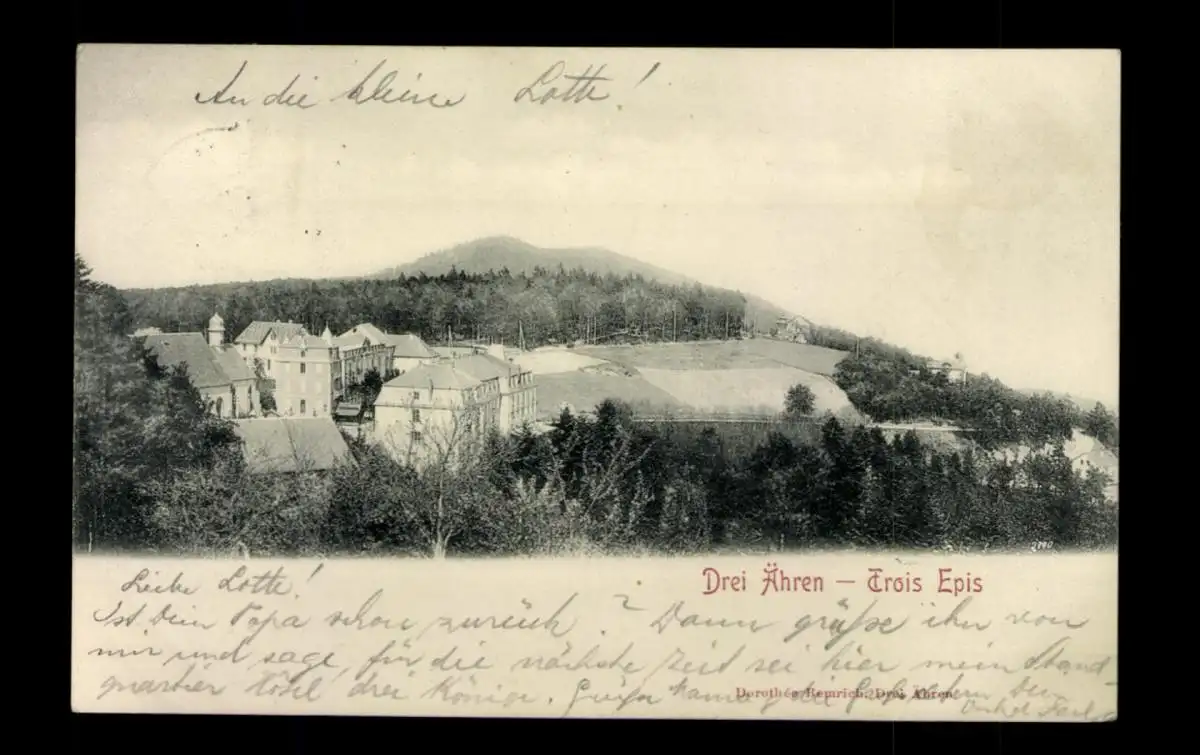 An die kleine Lotte!
2110
Drei Ähren – Trois Epis
Liebe Lotte!
Ist Dein Papa schon zurück? Dann grüße ihn von
mir und sage, für die nächste Zeit sei hier mein Stand-
quartier Hôtel drei Könige. Grüße Mama, die Dein
Dorothée Remrich, Drei Ähren
Onkel